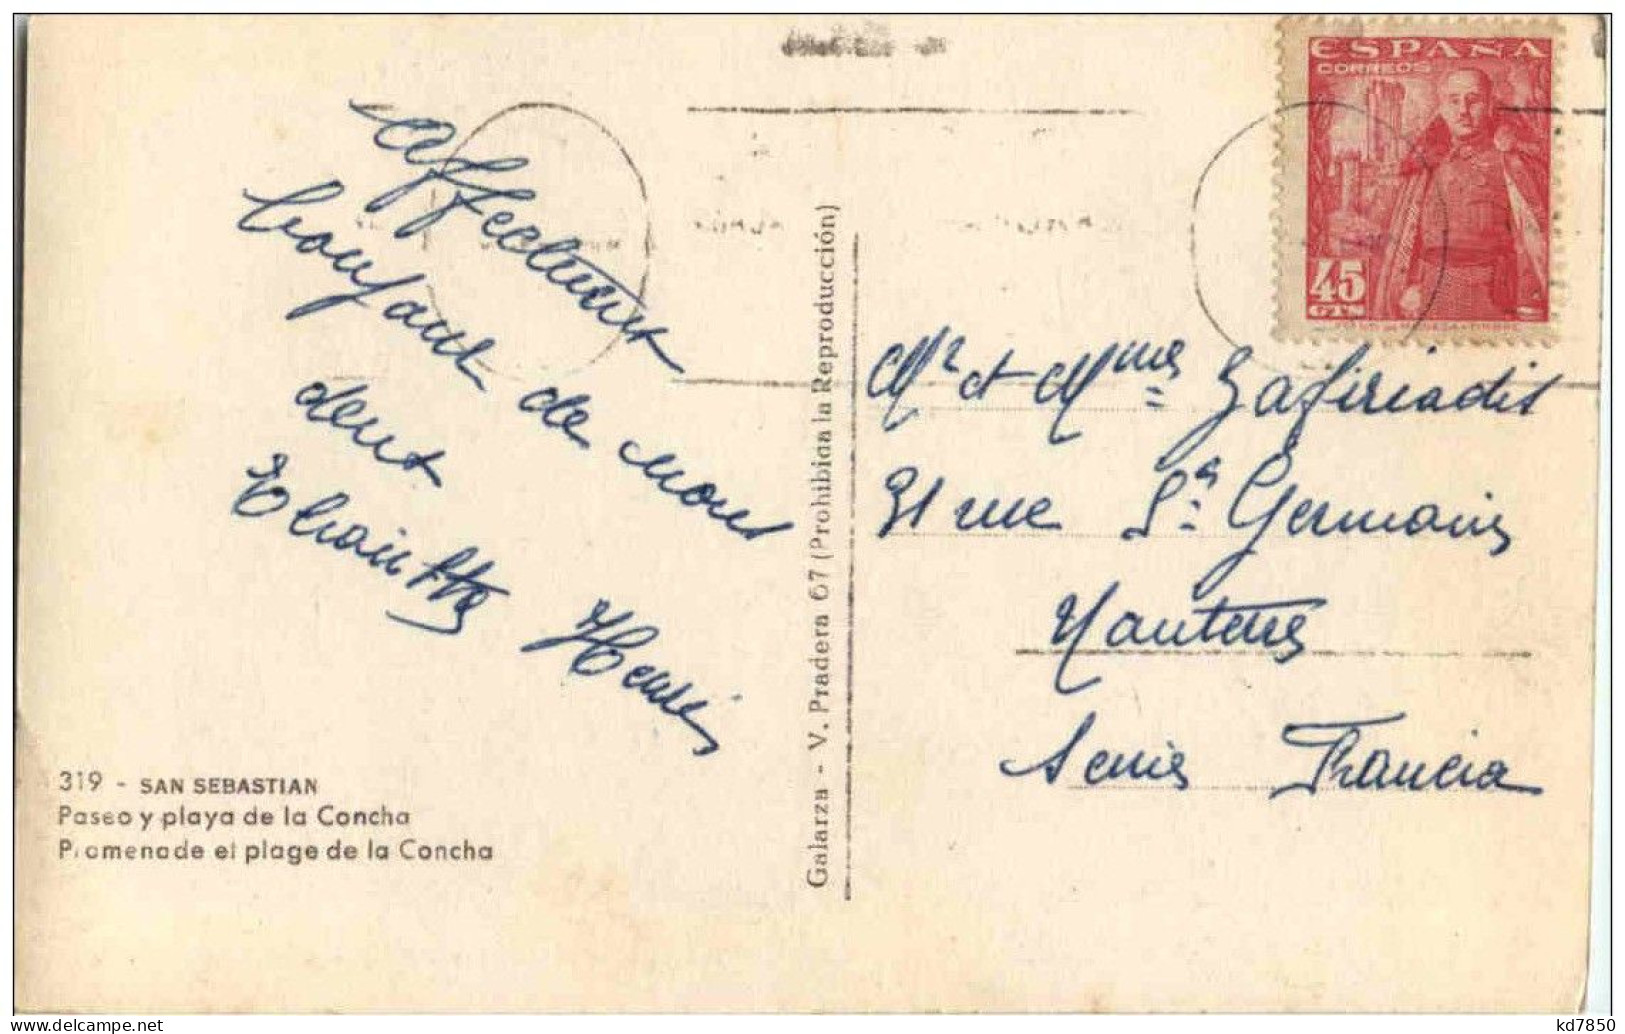 ESPAÑA
CORREOS
45
CTS
Affectueux
bonjour de nous
deux
Henri
Mr et Mme Zafiriadis
31 rue St Germain
Nanterre
Seine Francia
319 - SAN SEBASTIAN
Paseo y playa de la Concha
Promenade et plage de la Concha
Galarza - V. Pradera 67 (Prohibida la Reproducción)
www.delcampe.net
kd7850